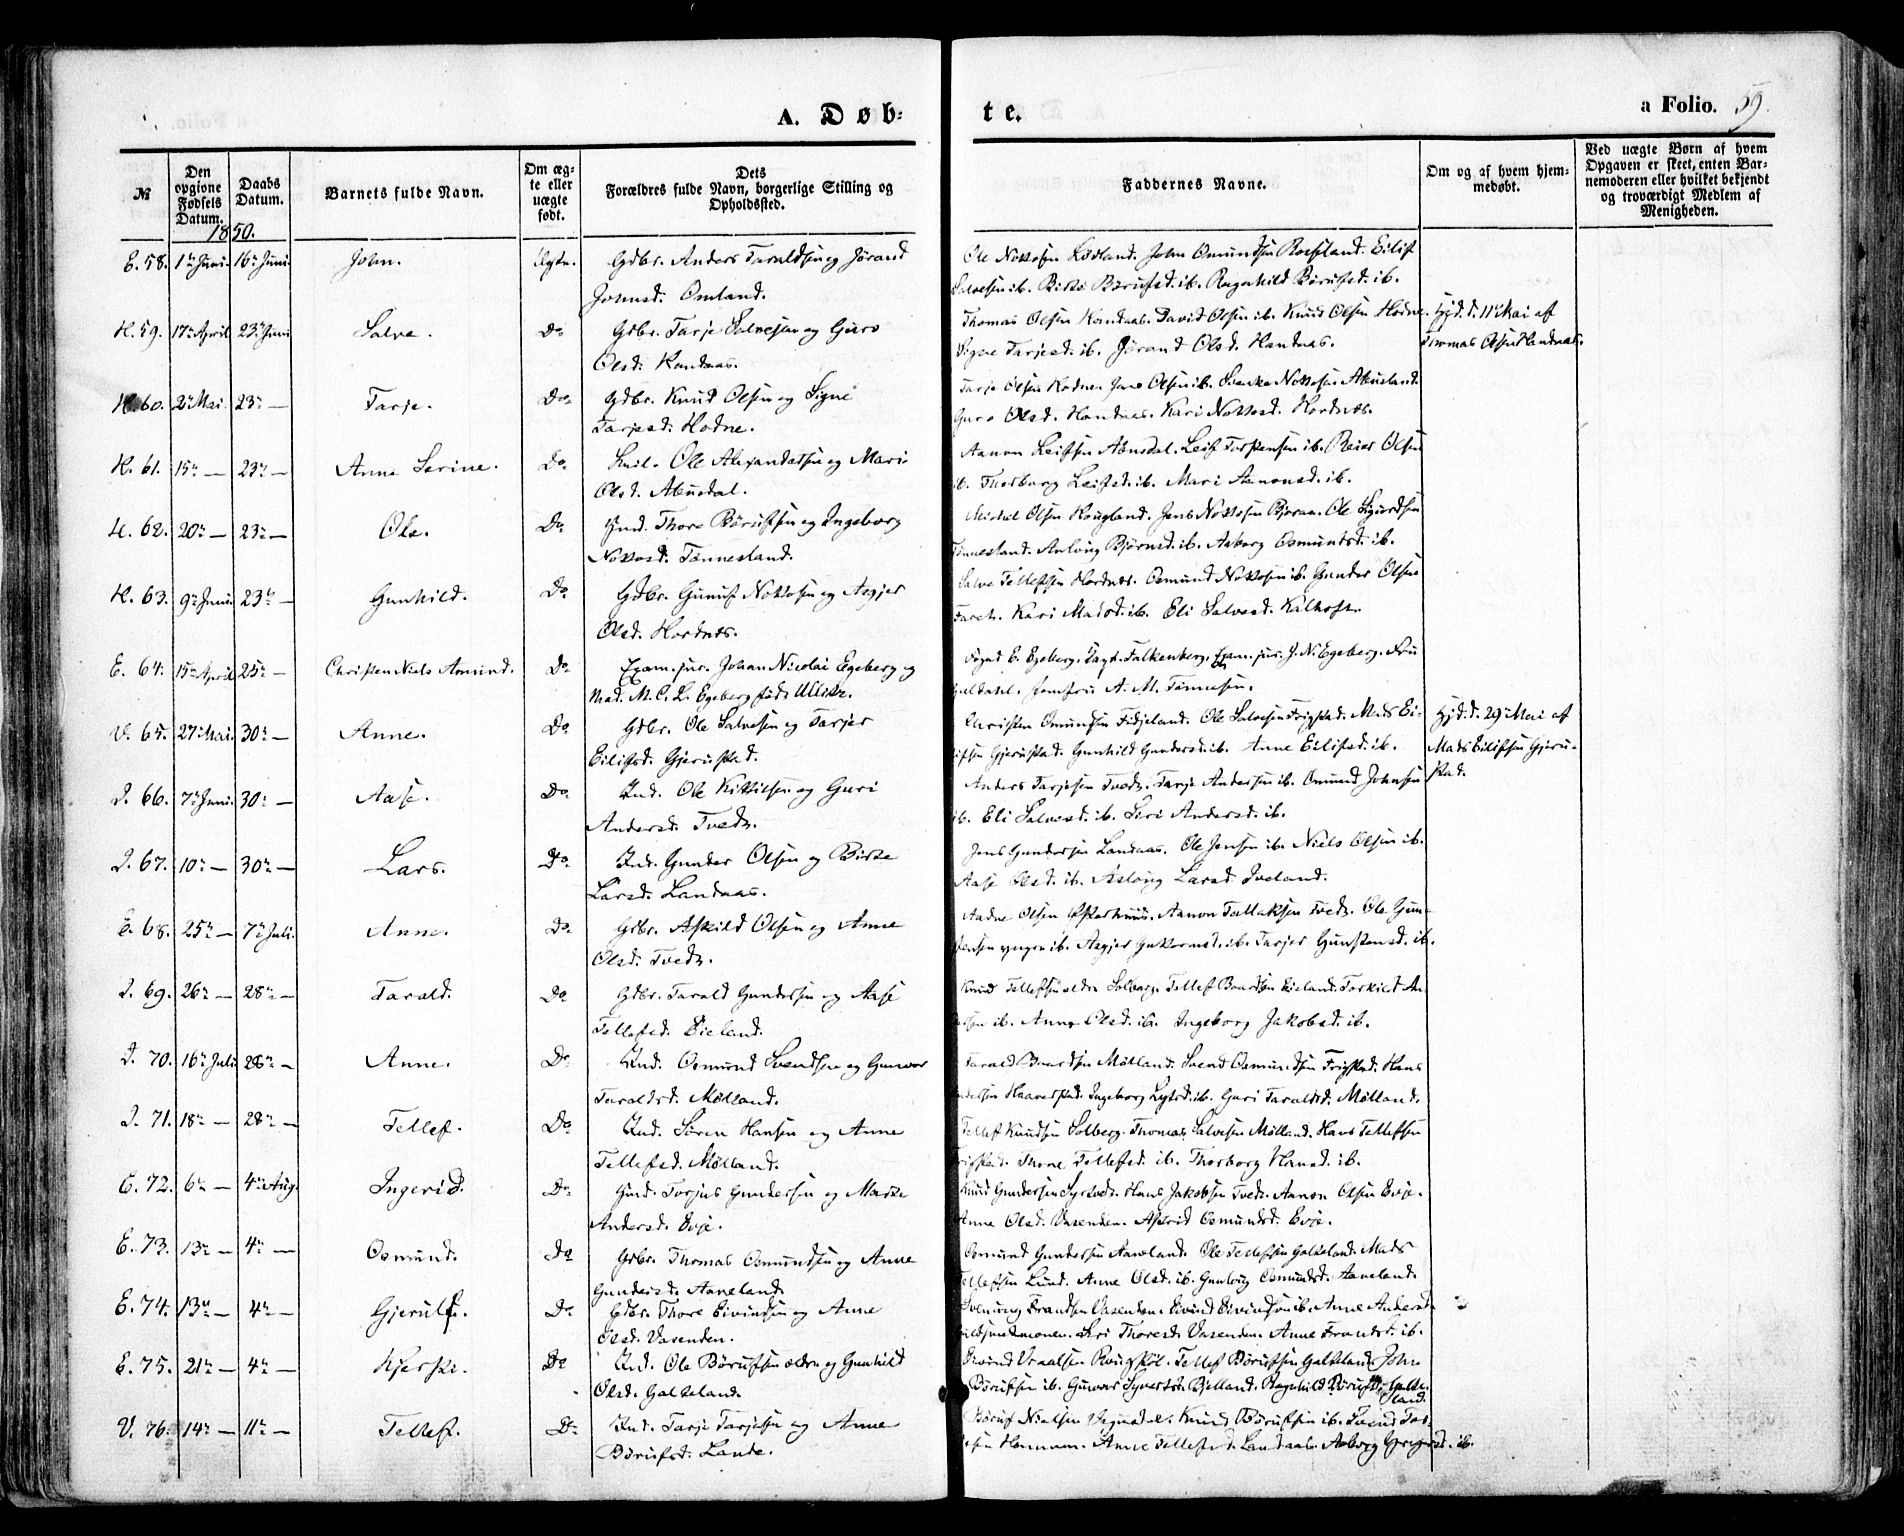 A. Døb-
te.
a Folio. 59.
№
Den opgivne Fødsels Datum.
Daabs Datum.
Barnets fulde Navn.
Om ægte eller uægte født.
Dets Forældres fulde Navn, borgerlige Stilling og Opholdssted.
Faddernes Navne.
Om og af hvem hjemmedøbt.
Ved uægte Børn af hvem Opgaven er skeet, enten Barnemoderen eller hvilket bekjendt og troværdigt Medlem af Menigheden.
1850.
E. 58. 1te Juni. 16te Juni. John. Ægte. Gdbr. Anders Taraldsen og Jørand
Johnsd. Omland.
Ole Nottosen Lødland. John Osmundsen Rosseland. Eilif
Salvesen ib. Birte Børufsd. ib. Ragnhild Børufsd. ib.
H. 59. 17de April 23de Juni Salve. Do Gdbr. Tarje Salvesen og Guro
Olsd.
Thomas Olsen David Olsen ib. Knud Olsen Hodne.
Signe Tarjesd. ib. Jørand Olsd. Handnas.
Hjd. d. 11te Mai af
Thomas Olsen Handnas.
H. 60. 2de Mai. 23de — Tarje. Do Gdbr. Knud Olsen og Signe
Tarjesd. Hodne.
Tarje Olsen Hodne. Jens Olsen ib. Svenke Nottosen Abusland.
Guro Olsd. Handnas. Kari Nottosd. Hordnes.
H. 61. 15de — 23de — Anne Serine. Do Ole Alexandersen og Mari
Olsd. Abusdal.
Aanon Leifsen Abusdal. Leif Torstensen ib. Reier Olsen
ib. Thorborg Leifsd. ib. Mari Aanonsd. ib.
H. 62. 20de — 23de — Ole. Do Ind. Thore Børufsen og Ingeborg
Nottosd. Tønnesland.
Michel Olsen Hougland. Jens Nottosen Ole Sigurdsen
Tønnesland. Anlaug Bjørnsd. ib. Asborg Osmundsd. ib.
H. 63. 9de Juni 23de — Gunhild. Do Gdbr. Gunuf Nottosen og Asgjer
Olsd. Hordnes.
Salve Tellefsen Hordnes. Osmund Nottosen ib. Gunder Olsen
Kari Madsd. ib. Eli Salvesd.
E. 64. 15de April 25de — Christen Niels Amund. Do Exam. jur. Johan Nicolai Egeberg og
Mad. M. C. L. Egeberg født Ulstz.
Foged E. Egeberg. Falkenberg. Exam. jur. J. N. Egeberg. Fru
Guldahl. Jomfru A. M. Tønnesen.
V. 65. 27de Mai. 30te — Anne. Do Gdbr. Ole Salvesen og Tarjer
Eilifsd. Gjerustad.
Christen Osmundsen Fidjeland. Ole Salvesen Frigstad. Mads Ei-
lifsen Gjerustad. Gunhild Gundersd. ib. Anne Eilifsd. ib.
Hjd. d. 29de Mai af
Mads Eilifsen Gjeru-
stad.
I. 66. 7de Juni. 30te — Aase. Do Ind. Ole Kittilsen og Guri
Andersd. Tvedt.
Anders Tarjesen Tvedt. Tarje Andersen ib. Osmund Johnsen
ib. Eli Salvesd. ib. Siri Andersd. ib.
I. 67. 10de — 30te — Lars. Do Ind. Gunder Olsen og Birte
Larsd. Landaas.
Jens Gundersen Landaas. Ole Jensen ib. Niels Olsen ib.
Aase Olsd. ib. Aslaug Larsd. Iveland.
E. 68. 25de — 7de Juli. Anne. Do Gdbr. Askild Olsen og Anne
Olsd. Tvedt.
Aadne Olsen Østerhuus. Aanon Tellaksen Tvedt. Ole Gun-
stensen yngre ib. Asgjer Guttormsd. ib. Tarjer Gunstensd. ib.
I. 69. 26de — 28de — Tarald. Do Gdbr. Tarald Gundersen og Aase
Tellefsd. Eieland.
Knud Tellefsen ældre Solberg. Tellef Baardsen Eieland. Torkild An-
dersen ib. Anne Olsd. ib. Ingeborg Jakobsd. ib.
I. 70. 16de Juli 28de — Anne. Do Ind. Osmund Svendsen og Gunvor
Taraldsd. Mølland.
Tarald Baardsen Mølland. Svend Osmundsen Frigstad. Hans
Haaverstad. Ingeborg ib. Guri Taraldsd. Mølland.
I. 71. 18de — 28de — Tellef. Do Ind. Søren Hansen og Anne
Tellefsd. Mølland.
Tellef Knudsen Solberg. Thomas Salvesen Mølland. Hans Tellefsen
Frigstad. Thone Tellefsd. ib. Thorborg Hansd. ib.
E. 72. 6te — 4de Aug. Ingerid. Do Ind. Torjus Gundersen og Marte
Andersd. Evje.
Knud Gundersen Syrtvedt. Hans Jakobsen Tvedt. Aanon Olsen Evje.
Anne Olsd. Vasenden. Astrid Osmundsd. Evje.
E. 73. 13de — 4de — Osmund. Do Gdbr. Thomas Osmundsen og Anne
Gundersd. Aaneland.
Osmund Gundersen Aaneland. Ole Tellefsen Galteland. Mads
Tellefsen Lund. Anne Olsd. ib. Gunlaug Osmundsd. Aaneland.
E. 74. 13de — 4de — Gjerulf. Do Gdbr. Thore Eivindsen og Anne
Olsd. Vasenden.
Svenung Frandsen Vasenden. Eivind Eivindsen ib. Anne Andersd.
Siri Thoresd. Vasenden. Anne Frandsd. ib.
E. 75. 21de — 4de — Kjersti. Do Ind. Ole Børufsen ældre og Gunhild
Olsd. Galteland.
Eivind Tellef Børufsen Galteland. John
Børufsen ib. Gunvor Syvertsd. Bjelland. Ragnhild Børufsd. Galte-
land.
V. 76. 14de — 11te — Tellef. Do Ind. Tarje Tarjesen og Anne
Børufsd. Lande.
Børuf Nielsen Vegusdal. Knud Børufsen ib. Svend Tar-
jesen Anne Tellefsd. Landaas. Asborg ib.